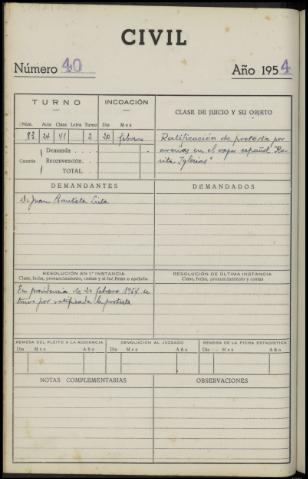 CIVIL
Número 40 Año 1954
TURNO INCOACIÓN CLASE DE JUICIO Y SU OBJETO
Núm. Año Clase Letra Turno Día Mes
83 24 41 2 20 febrero Ratificación de protesta por
Demanda averías en el vapor español "Ro-
Cuantía Reconvención sita Iglesias"
TOTAL
DEMANDANTES DEMANDADOS
D. Juan Bautista
RESOLUCIÓN EN 1ª INSTANCIA RESOLUCIÓN DE ÚLTIMA INSTANCIA
Clase, fecha, pronunciamiento, costas y si fué firme o apelada Clase, fecha, pronunciamiento y costas
En providencia de 20 febrero 1954 se
tuvo por ratificada la protesta
REMESA DEL PLEITO A LA AUDIENCIA DEVOLUCIÓN AL JUZGADO REMESA DE LA FICHA ESTADÍSTICA
Día Mes Año Día Mes Año Día Mes Año
NOTAS COMPLEMENTARIAS OBSERVACIONES